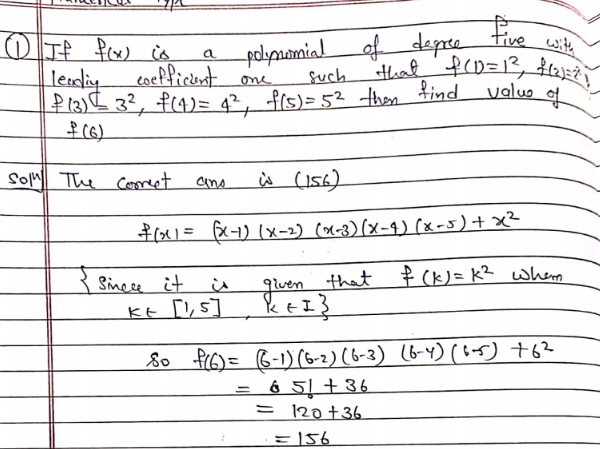 ① If f(x) is a polynomial of degree five with
leading coefficient one such that f(1)=1², f(2)=2²,
f(3)=3², f(4)=4², f(5)=5² then find value of
f(6)
Solⁿ The correct ans is (156)
f(x) = (x-1)(x-2)(x-3)(x-4)(x-5)+x²
{Since it is given that f(k)=k² when
k∈ [1,5], k∈I}
So f(6)= (6-1)(6-2)(6-3)(6-4)(6-5)+6²
= 5!+36
= 120+36
=156